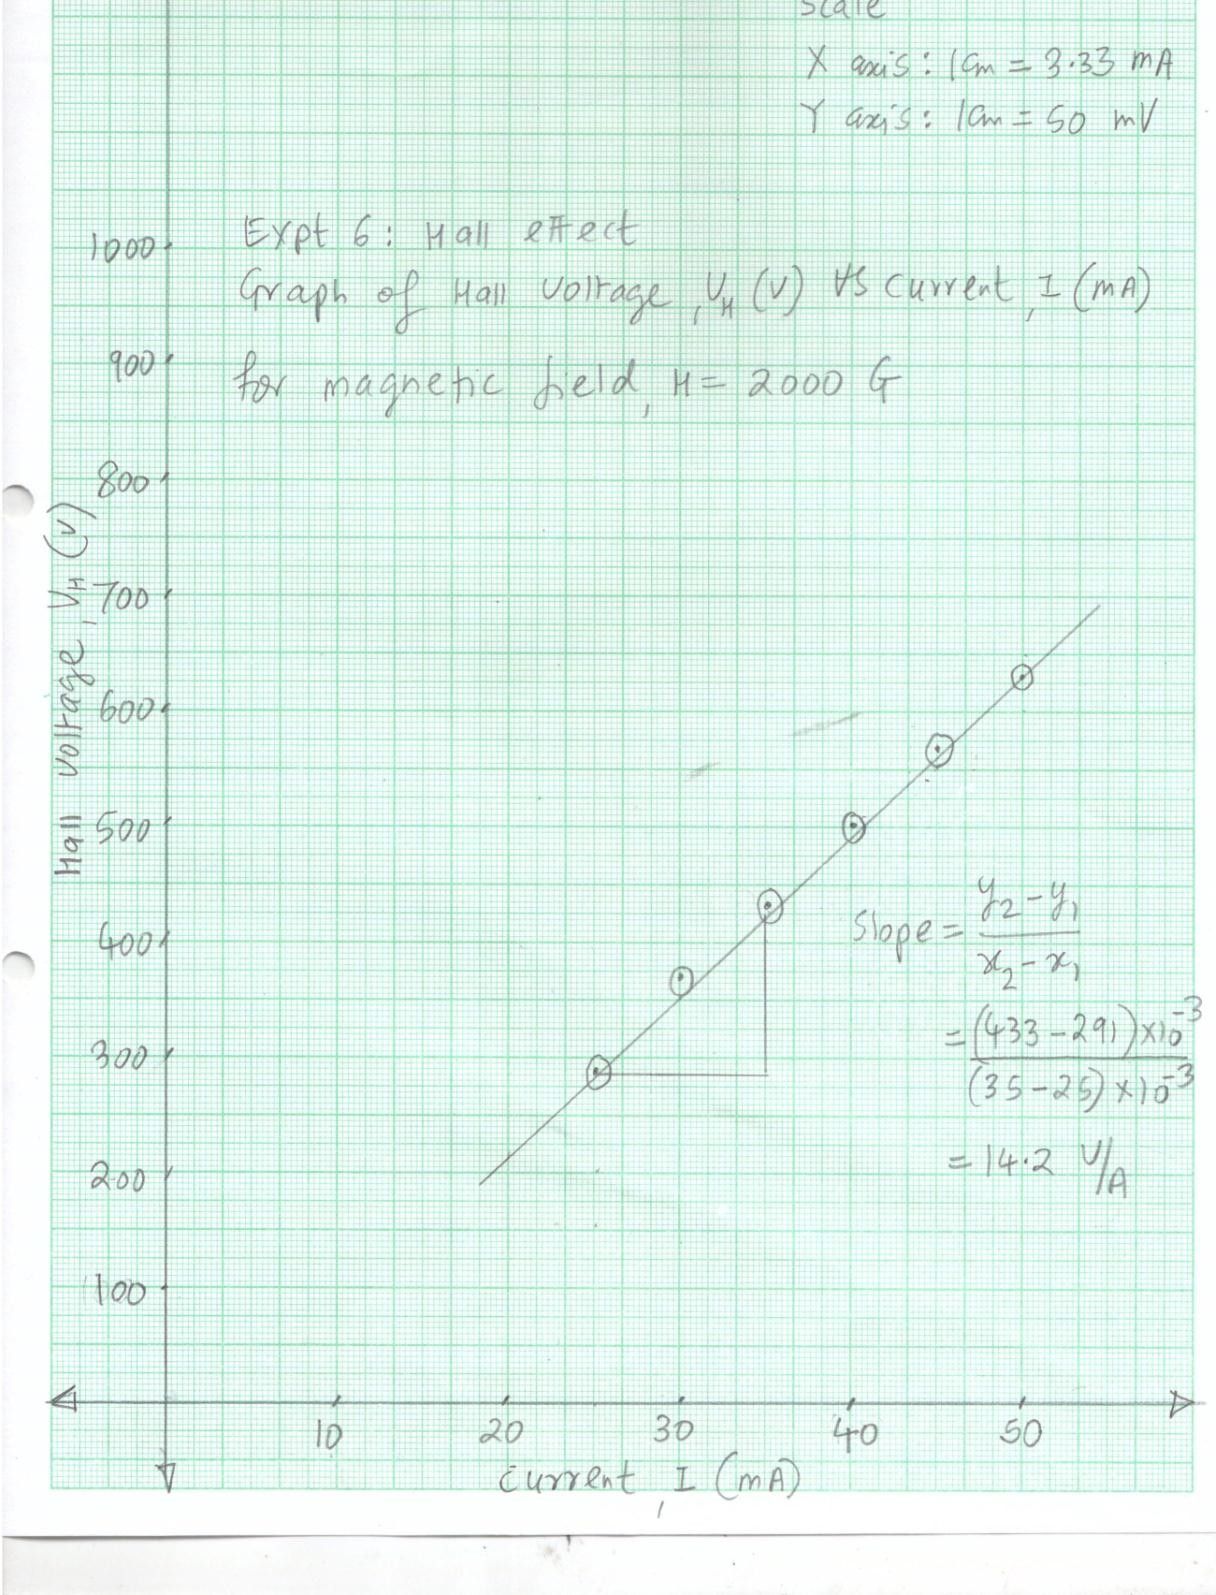 Scale
X axis: 1Cm = 3.33 mA
Y axis: 1Cm = 50 mV
Expt 6: Hall effect
Graph of Hall Voltage, VH (V) VS Current, I (mA)
for magnetic field, H = 2000 G
1000
900
800
700
600
500
400
300
200
100
Hall voltage, VH (V)
Slope = y2 - y1
x2 - x1
= (433 - 291) × 10^-3
(35 - 25) × 10^-3
= 14.2 V/A
10 20 30 40 50
Current, I (mA)